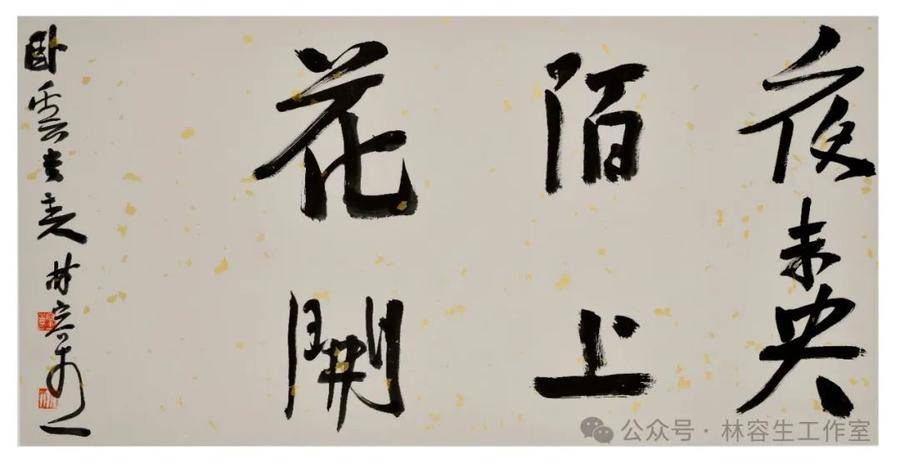 夜未央
陌上
花開
林容生
公众号 · 林容生工作室